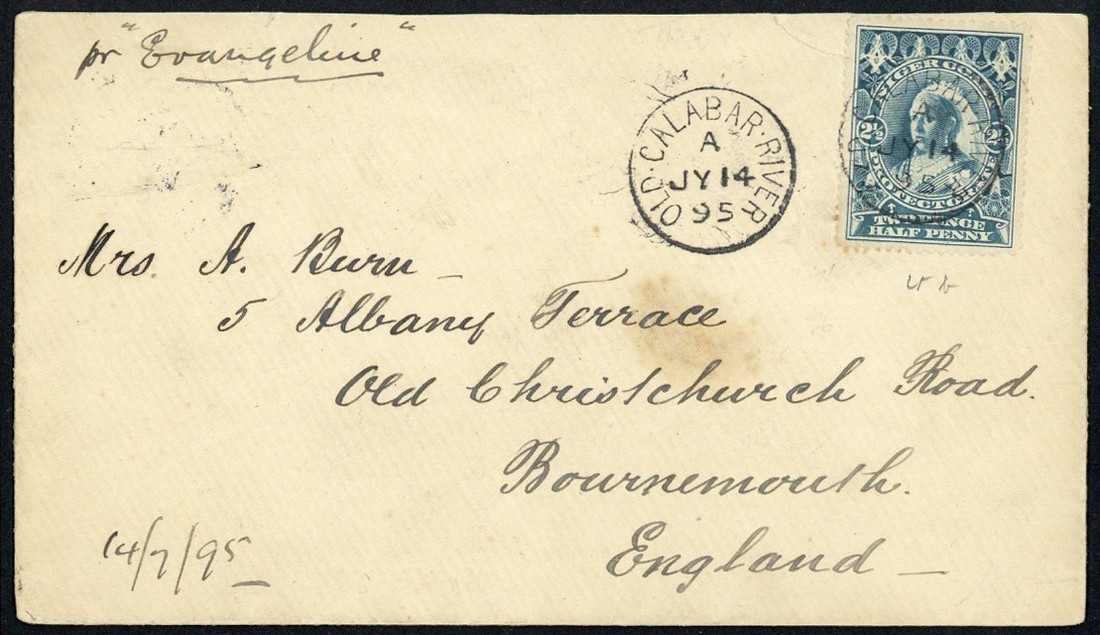 pr "Evangeline"
OLD·CALABAR·RIVER
A
JY 14
95
NIGER COAST
2½ 2½
PROTECTORATE
TWOPENCE
HALF PENNY
A
JY 14
95
Mrs. A. Burn —
5 Albany Terrace
Old Christchurch Road.
Bournemouth.
England —
14/7/95